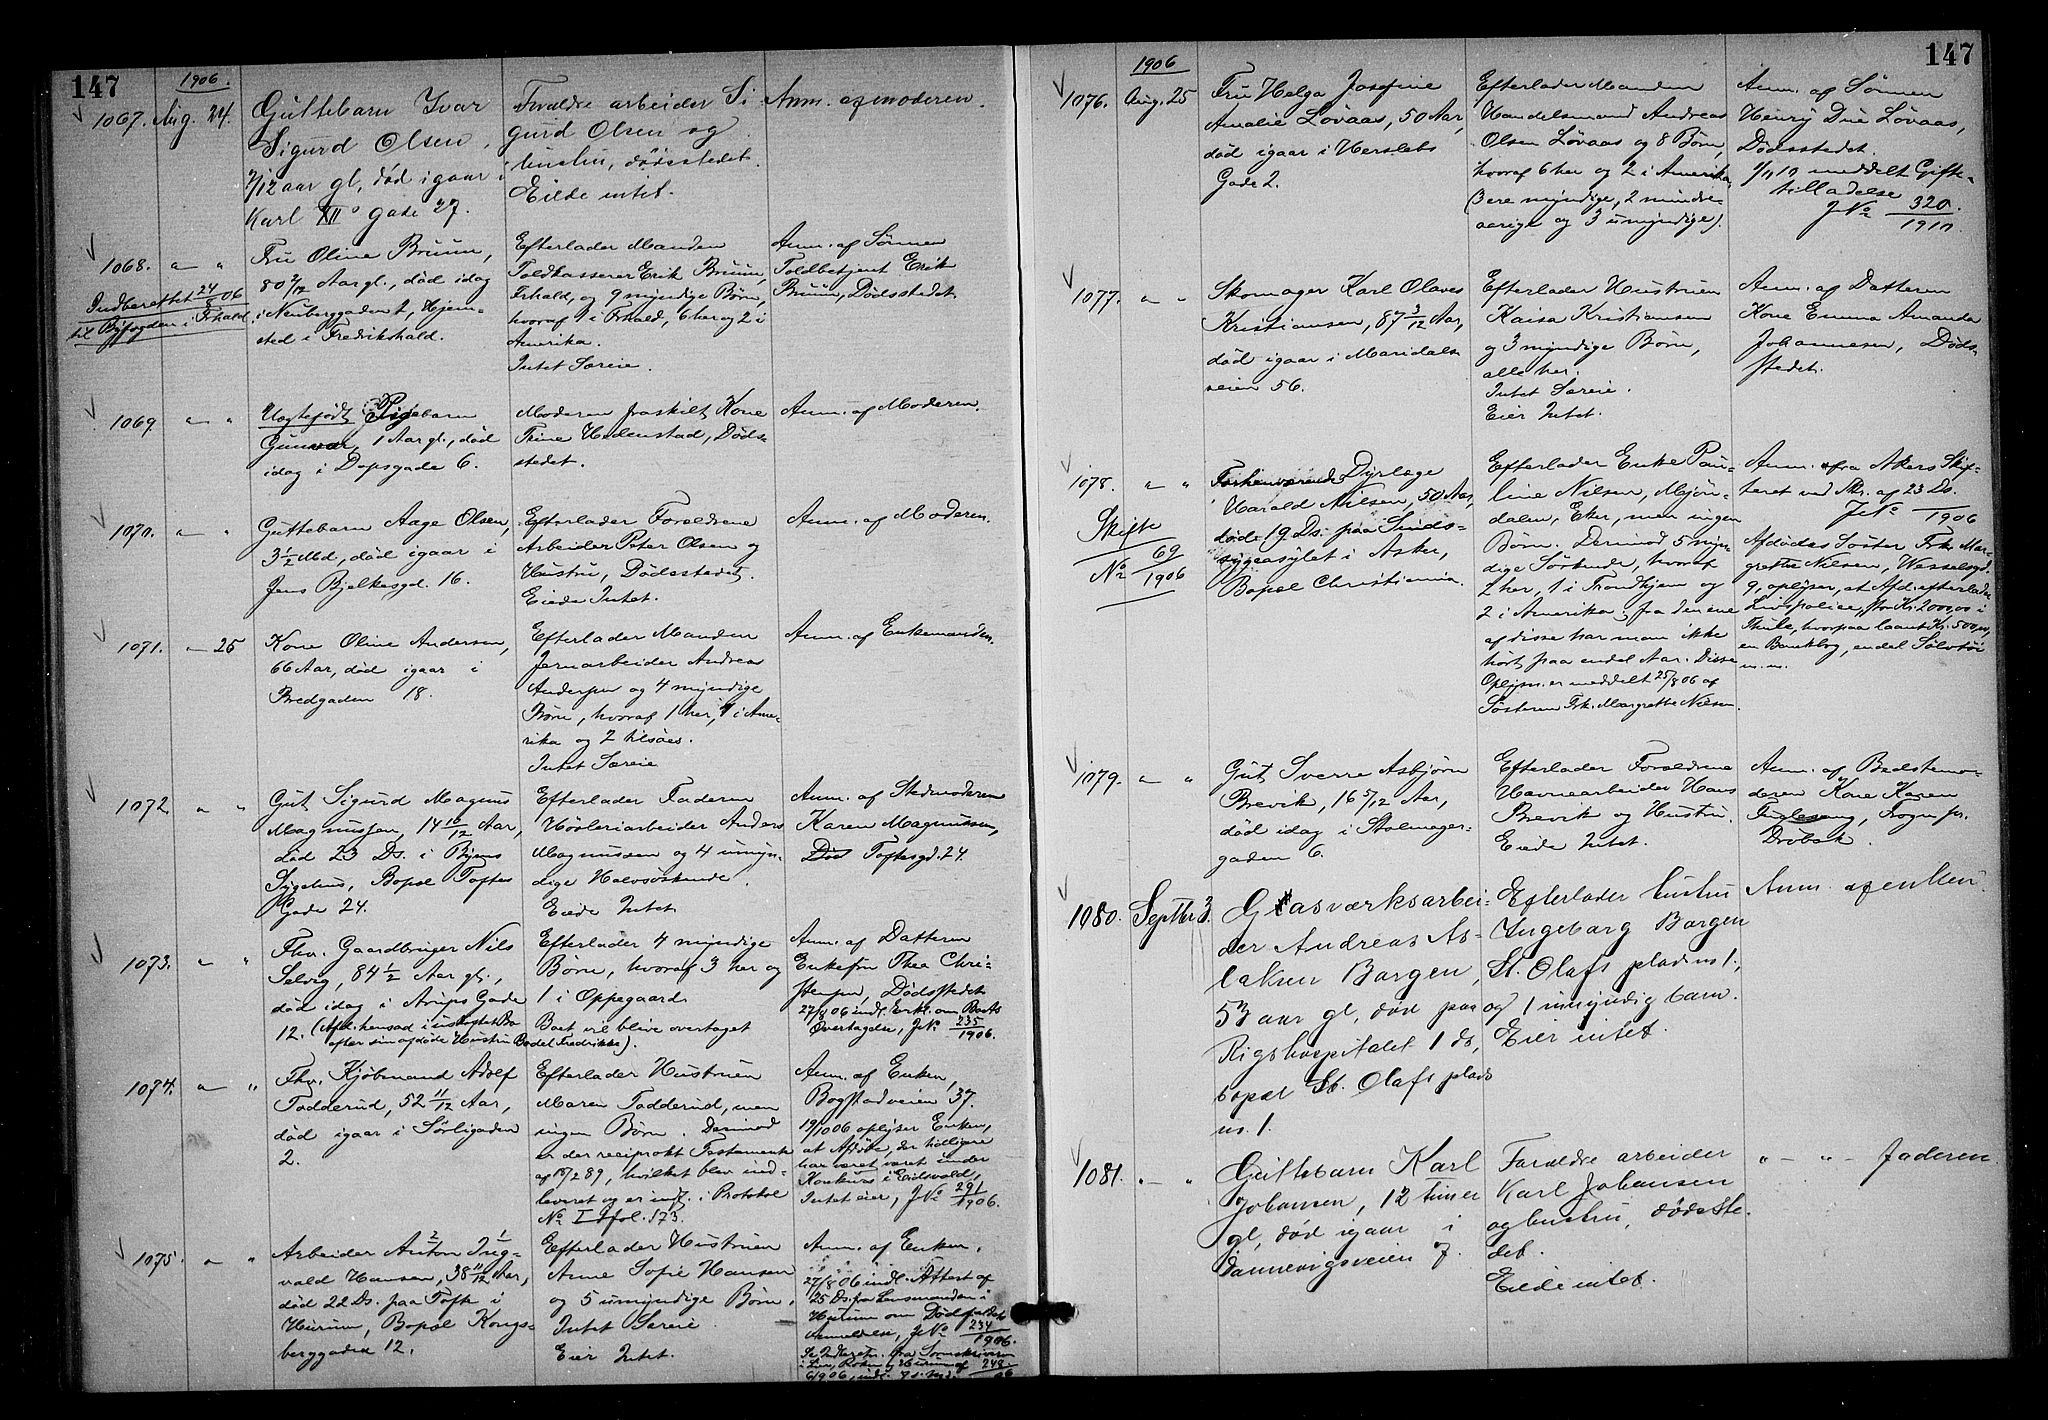 147
1906.
1067. Aug. 24.
Guttebarn Ivar
Sigurd Olsen,
7/12 aar gl, død igaar i
Karl XII's gade 27.
Forældre arbeider Si-
gurd Olsen og
hustru, dødsstedet.
Eiede intet.
Anm. af moderen.
1068. " "
Indberettet 24/8 06
til Byfogden i Frhald
Fru Oline Bruun,
80 2/12 Aar gl., død idag
i Neuberggaden 1, Hjem-
sted i Fredrikshald.
Efterlader Manden
Toldkasserer Erik Bruun,
Frhald, og 9 myndige Børn,
hvoraf 1 i Frhald, 6 her og 2 i
Amerika.
Intet Særeie.
Anm. af Sønnen
Toldbetjent Erik
Bruun, Dødsstedet.
1069 " "
Uægtefødt Pigebarn
Gunvor, 1 Aar gl., død
idag i Dopsgade 6.
Moderen fraskilt Kone
Trine Hedenstad, Døds-
stedet.
Anm. af Moderen.
1070. " "
Guttebarn Aage Olsen,
3 1/2 Md, død igaar i
Jens Bjelkesgd. 16.
Efterlader Forældrene
Arbeider Peter Olsen og
Hustru, Dødsstedet.
Eiede Intet.
Anm. af Moderen.
1071. " 25
Kone Oline Andersen,
66 Aar, død igaar i
Bredgaden 18.
Efterlader Manden
Jernarbeider Andreas
Andersen og 4 myndige
Børn, hvoraf 1 her, 1 i Ame-
rika og 2 tilsøes.
Intet Særeie
Anm. af Enkemanden.
1072. " "
Gut Sigurd Magnus
Magnussen, 14 10/12 Aar,
død 23 Ds. i Byens
Sygehus, Bopæl Toftes
Gade 24.
Efterlader Faderen
Høvleriarbeider Anders
Magnussen og 4 umyn-
dige Halvsøskende.
Eiede Intet
Anm. af Stedmoderen
Karen Magnussen,
Død Toftesgd. 24.
1073. " "
Fhv. Gaardbruger Nils
Selvig, 84 1/2 Aar gl.,
død idag i Arups Gade
12. (Afd. hensad i uskiftet Bo
efter sin afdøde Hustru Bodel Fredrikke).
Efterlader 4 myndige
Børn, hvoraf 3 her og
1 i Oppegaard
Boet vil blive overtaget
Anm. af Datteren
Enkefru Thea Chri-
stensen, Dødsstedet
27/8 06 indl. Erkl. om Boets
Overtagelse, J№ 235/1906.
1074. " "
Fhv. Kjøbmand Adolf
Todderud, 52 11/12 Aar,
død igaar i Sørligaden
2.
Efterlader Hustruen
Maren Todderud, men
ingen Børn. Derimod
er der reciprokt Testamente
af 18/2 89, hvilket blev ind-
leveret og er indf. i Protokol
№ I fol. 173.
Anm. af Enken,
Bogstadveien 37.
19/10 06 oplyser Enken,
at Afdøde, der tidligere
har været været under
Konkurs i Eidsvold,
Intet eier, J№ 291/1906.
1075. " "
Arbeider Anton Ing-
vald Hansen, 38 11/12 Aar,
død 22 Ds. paa Tofte i
Hurum, Bopæl Kongs-
berggaden 12.
Efterlader Hustruen
Anne Sofie Hansen
og 5 umyndige Børn.
Intet Særeie.
Eier Intet.
Anm. af Enken.
27/8 06 indl. Attest af
25 Ds. fra Lensmanden i
Hurum om Dødsfaldets
Anmeldelse, J№ 234/1906.
147
1906
1076. Aug. 25
Fru Helga Josefine
Amalie Løvaas, 50 Aar,
død igaar i Herslebs
Gade 2.
Efterlader Manden
Handelsmand Andreas
Olsen Løvaas og 8 Børn,
hvoraf 6 her og 2 i Amerika
(3 ere myndige, 2 mindre-
aarige og 3 umyndige).
Anm. af Sønnen
Henry Due Løvaas,
Dødsstedet.
1/11 10 meddelt Gifte-
tilladelse
J№ 320/1910.
1077. " "
Skomager Karl Olaves
Kristiansen, 87 3/12 Aar,
død igaar i Maridals-
veien 56.
Efterlader Hustruen
Kaisa Kristiansen
og 3 myndige Børn,
alle her.
Intet Særeie.
Eier Intet.
Anm. af Datteren
Kone Emma Amanda
Johannesen, Døds-
stedet.
1078. " "
Skifte
№ 69/1906
Forhenværende Dyrlæge
Harald Nilsen, 50 Aar,
døde 19 Ds. paa Sinds-
sygeasylet i Asker,
Bopæl Christiania.
Efterlader Enke Pau-
line Nilsen, Mjøn-
dalen, Eker, men ingen
Børn. Derimod 5 myn-
dige Søskende, hvoraf
2 her, 1 i Trondhjem og
2 i Amerika; fra den ene
af disse har man ikke
hørt paa endel Aar. Disse
Oplysn. er meddelt 25/8 06 af
Søsteren Frk. Margrethe Nilsen.
Anm. fra Akers Skif-
teret ved Skr. af 23 Ds.
J№ /1906
Afdødes Søster Frk. Mar-
grethe Nilsen, Wesselsgd.
9, oplyser, at Afd. efterlader
Livspolice, stor Kr. 2000,00 i
Thule, hvorpaa laant Kr. 500,00,
en Bankbog, endel Sølvtøi
m. m.
1079. " "
Gut Sverre Asbjørn
Brevik, 16 5/12 Aar,
død idag i Stolmager-
gaden 6.
Efterlader Forældrene
Havnearbeider Hans
Brevik og Hustru.
Eiede Intet.
Anm. af Bedstemo-
deren Kone Karen
Fuglesang, Frogn pr.
Drøbak.
1080. Septbr 3.
Gasværksarbei-
der Andreas As-
laksen Borgen,
53 aar gl, død paa
Rigshospitalet 1 ds,
bopæl St. Olafs plads
no. 1.
Efterlader hustru
Ingeborg Borgen
St. Olafs plads no 1.,
og 1 umyndig barn.
Eier intet.
Anm. af enken.
1081. " "
Guttebarn Karl
Johansen, 12 timer
gl, død igaar i
Dannevigsveien 9.
Forældre arbeider
Karl Johansen
og hustru, dødsste-
det.
Eiede intet.
" — " — faderen